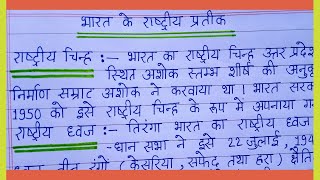 भारत के राष्ट्रीय प्रतीक
राष्ट्रीय चिन्ह :— भारत का राष्ट्रीय चिन्ह उत्तर प्रदेश
स्थित अशोक स्तम्भ शीर्ष की अनुकृ
निर्माण सम्राट अशोक ने करवाया था। भारत सरक
1950 को इसे राष्ट्रीय चिन्ह के रूप में अपनाया गय
राष्ट्रीय ध्वज :— तिरंगा भारत का राष्ट्रीय ध्वज
-धान सभा ने इसे 22 जुलाई, 194
तीन रंगों (केसरिया, सफेद तथा हरा)